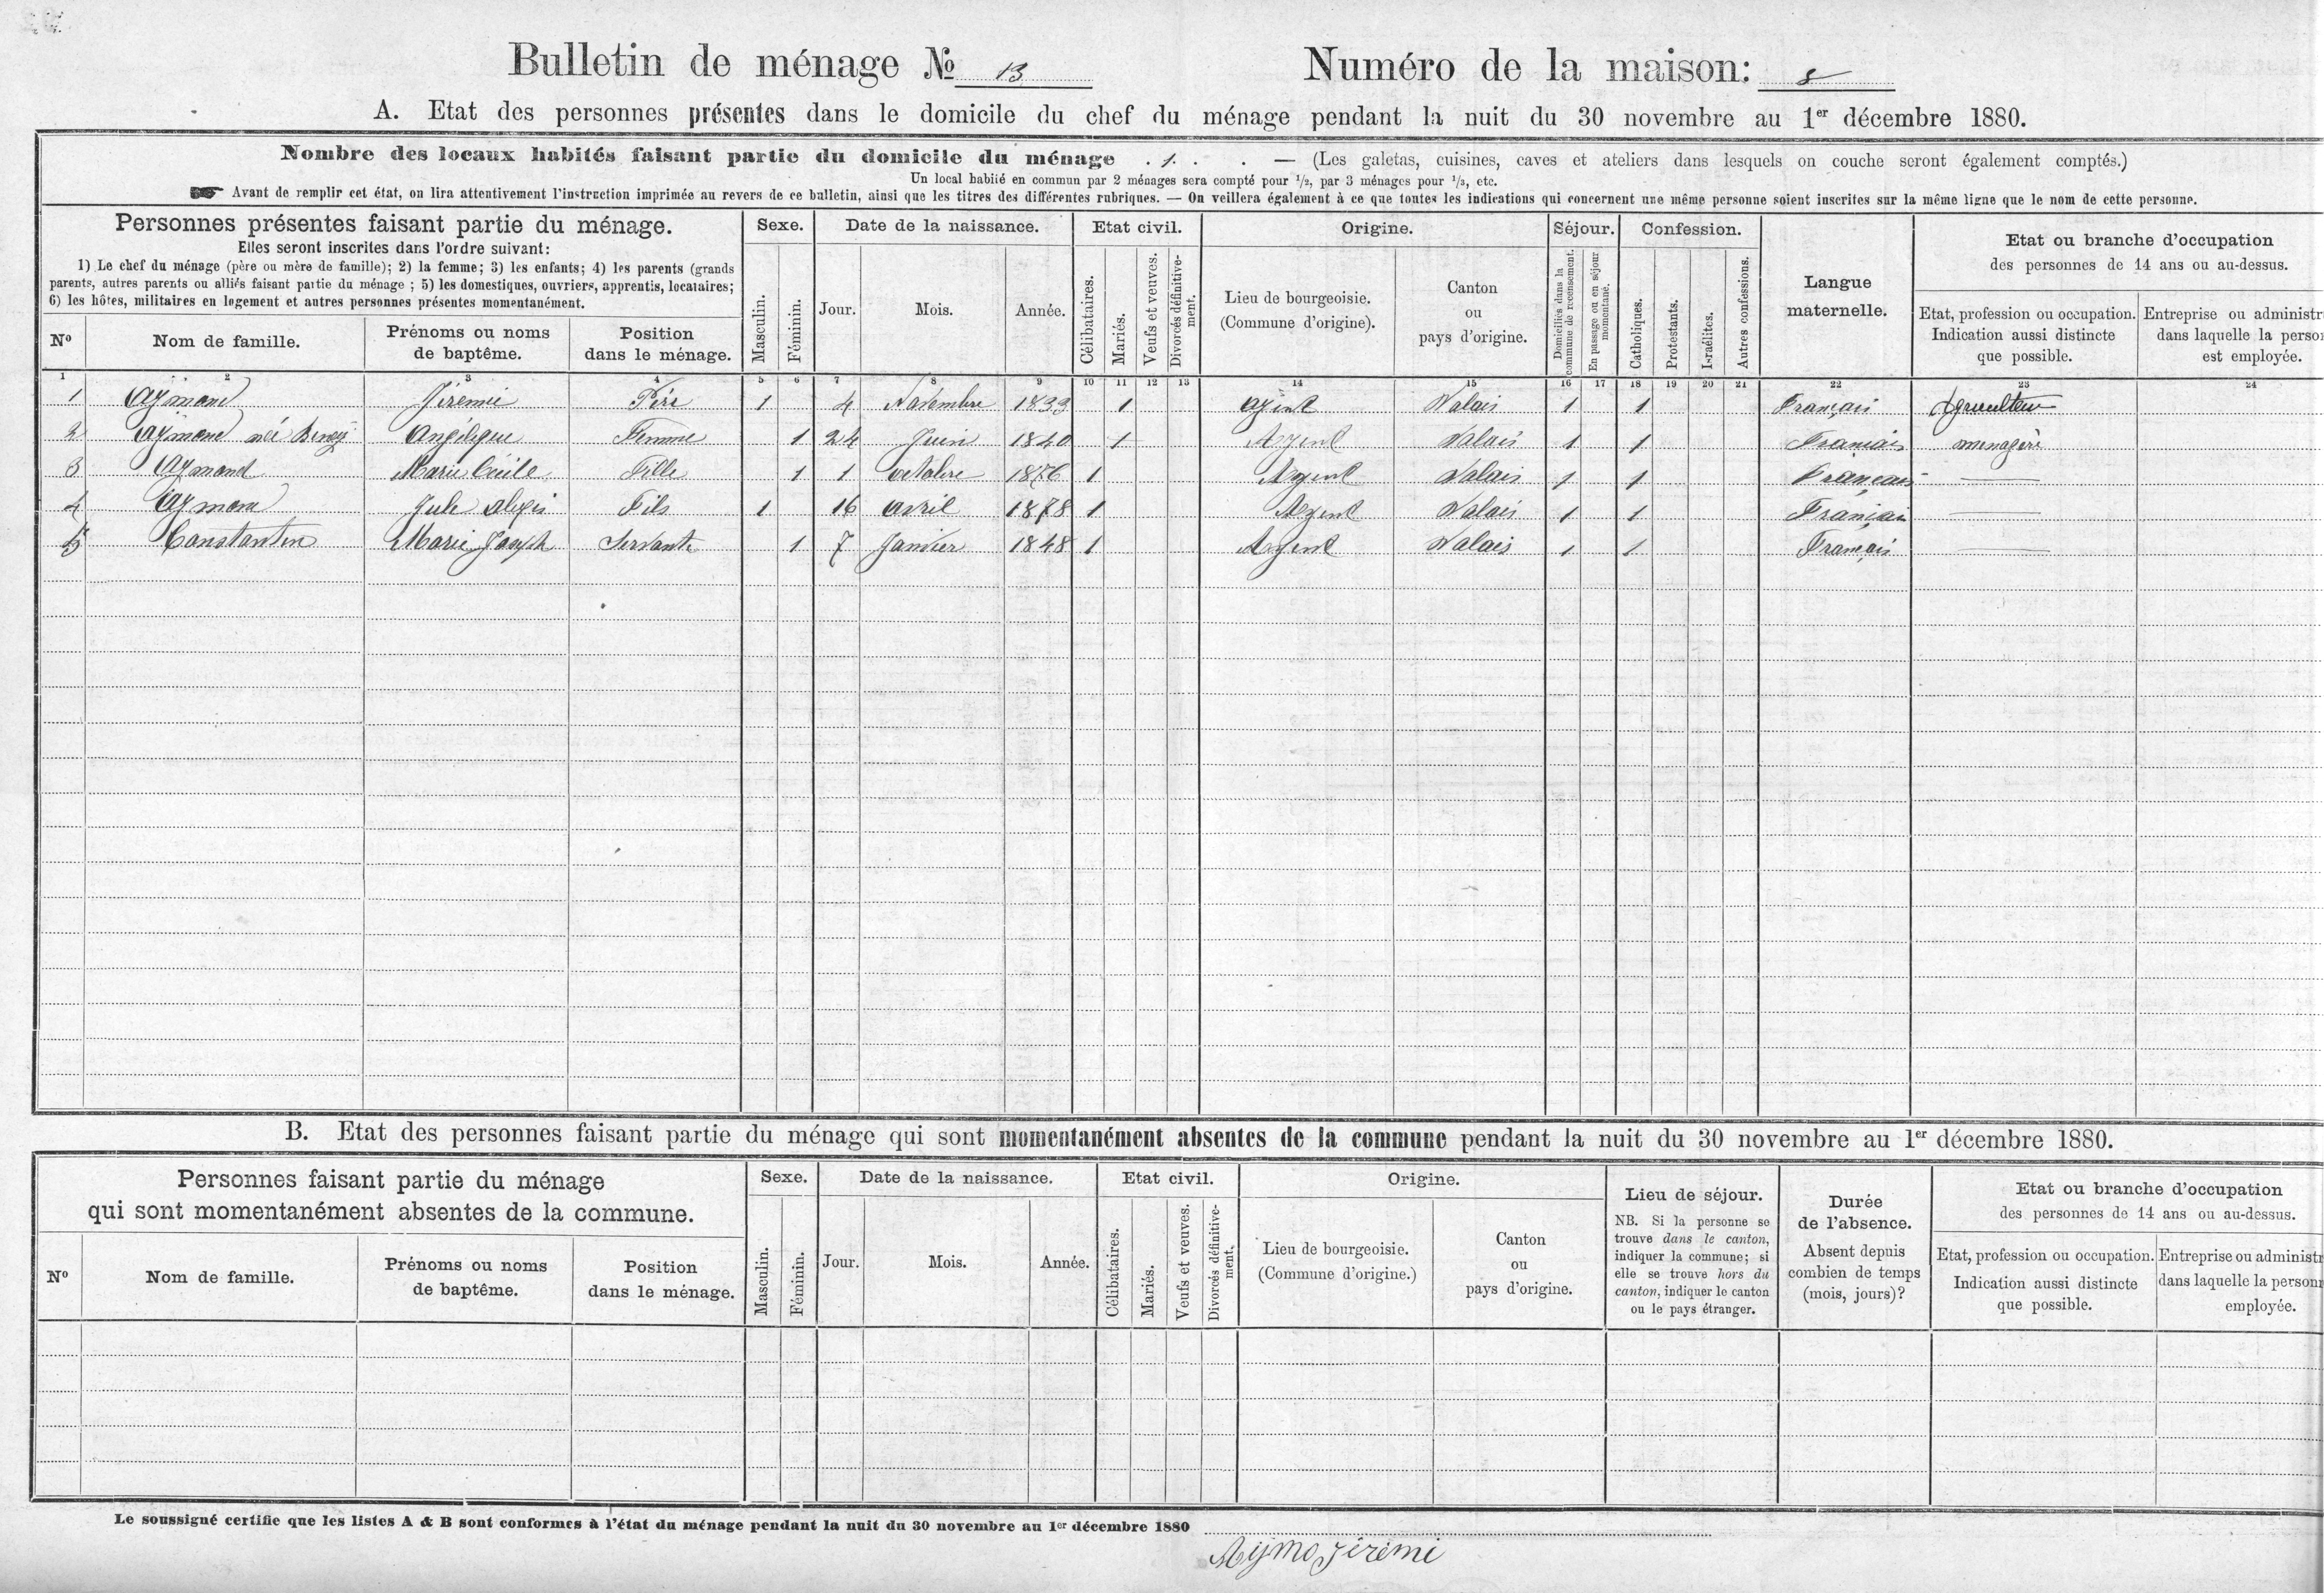 Bulletin de ménage № 13 Numéro de la maison: 8
A. Etat des personnes présentes dans le domicile du chef du ménage pendant la nuit du 30 novembre au 1er décembre 1880.
Nombre des locaux habités faisant partie du domicile du ménage . 1. . . — (Les galetas, cuisines, caves et ateliers dans lesquels on couche seront également comptés.)
Un local habité en commun par 2 ménages sera compté pour 1/2, par 3 ménages pour 1/3, etc.
Avant de remplir cet état, on lira attentivement l'instruction imprimée au revers de ce bulletin, ainsi que les titres des différentes rubriques. — On veillera également à ce que toutes les indications qui concernent une même personne soient inscrites sur la même ligne que le nom de cette personne.
Personnes présentes faisant partie du ménage.
Elles seront inscrites dans l'ordre suivant:
1) Le chef du ménage (père ou mère de famille); 2) la femme; 3) les enfants; 4) les parents (grands
parents, autres parents ou alliés faisant partie du ménage ; 5) les domestiques, ouvriers, apprentis, locataires;
6) les hôtes, militaires en logement et autres personnes présentes momentanément.
No
Nom de famille.
Prénoms ou noms
de baptême.
Position
dans le ménage.
Sexe.
Masculin.
Féminin.
Date de la naissance.
Jour.
Mois.
Année.
Etat civil.
Célibataires.
Mariés.
Veufs et veuves.
Divorcés définitive-
ment.
Origine.
Lieu de bourgeoisie.
(Commune d'origine).
Canton
ou
pays d'origine.
Séjour.
Domiciliés dans la
commune de recensement.
En passage ou en séjour
momentané.
Confession.
Catholiques.
Protestants.
Israélites.
Autres confessions.
Langue
maternelle.
Etat ou branche d'occupation
des personnes de 14 ans ou au-dessus.
Etat, profession ou occupation.
Indication aussi distincte
que possible.
Entreprise ou administr
dans laquelle la perso
est employée.
1 2 3 4 5 6 7 8 9 10 11 12 13 14 15 16 17 18 19 20 21 22 23 24
1 Aymond Jérémie Père 1 4 Novembre 1833 1 Ayent Valais 1 1 Français Agriculteur
2 Aymond née Beney Angélique Femme 1 24 Juin 1840 1 Ayent Valais 1 1 Français menagère
3 Aymond Marie Cécile Fille 1 1 octobre 1876 1 Ayent Valais 1 1 Français —
4 Aymon Jule Alexis Fils 1 16 avril 1878 1 Ayent Valais 1 1 Français —
5 Constantin Marie Joseph Servante 1 7 Janvier 1848 1 Ayent Valais 1 1 Français —
B. Etat des personnes faisant partie du ménage qui sont momentanément absentes de la commune pendant la nuit du 30 novembre au 1er décembre 1880.
Personnes faisant partie du ménage
qui sont momentanément absentes de la commune.
No
Nom de famille.
Prénoms ou noms
de baptême.
Position
dans le ménage.
Sexe.
Masculin.
Féminin.
Date de la naissance.
Jour.
Mois.
Année.
Etat civil.
Célibataires.
Mariés.
Veufs et veuves.
Divorcés définitive-
ment.
Origine.
Lieu de bourgeoisie.
(Commune d'origine.)
Canton
ou
pays d'origine.
Lieu de séjour.
NB. Si la personne se
trouve dans le canton,
indiquer la commune; si
elle se trouve hors du
canton, indiquer le canton
ou le pays étranger.
Durée
de l'absence.
Absent depuis
combien de temps
(mois, jours)?
Etat ou branche d'occupation
des personnes de 14 ans ou au-dessus.
Etat, profession ou occupation.
Indication aussi distincte
que possible.
Entreprise ou administr
dans laquelle la person
employée.
Le soussigné certifie que les listes A & B sont conformes à l'état du ménage pendant la nuit du 30 novembre au 1er décembre 1880
Aymo Jérémi